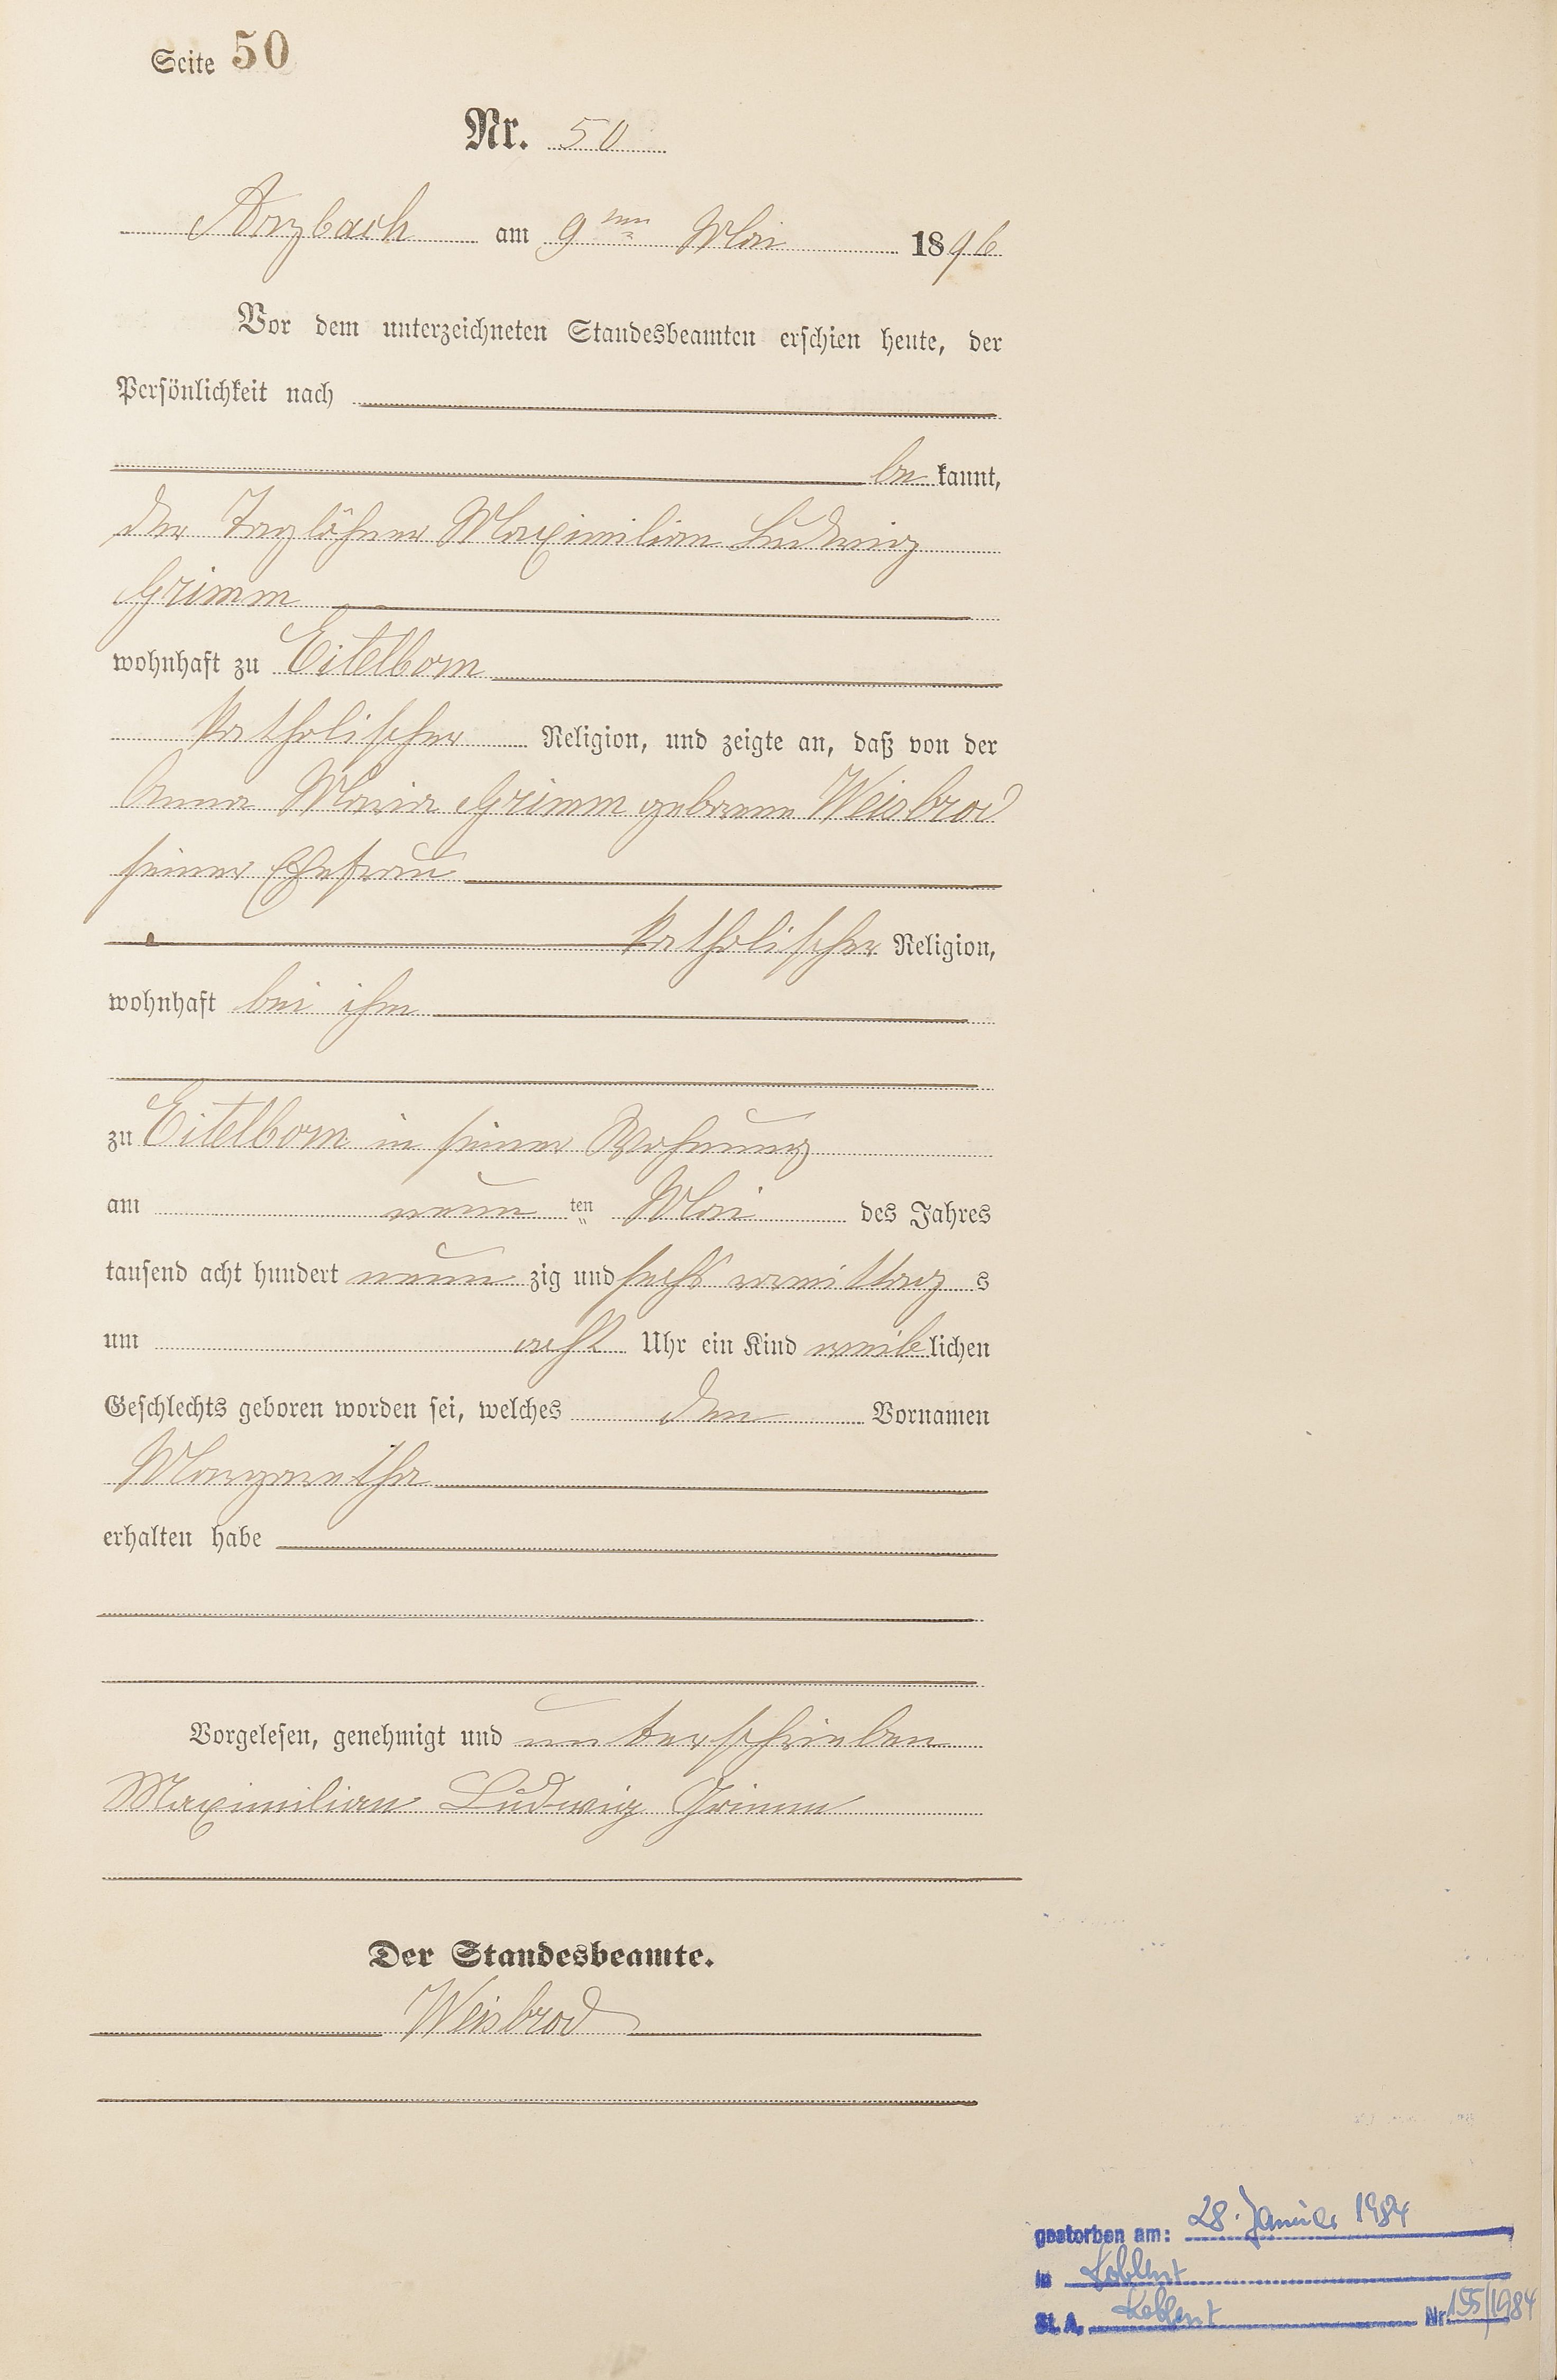 Seite 50
Nr. 50
Arzbach am 9ten Mai 1896
Vor dem unterzeichneten Standesbeamten erschien heute, der
Persönlichkeit nach
bekannt,
der Taglöhner Maximilian Ludwig
Grimm
wohnhaft zu Eitelborn
katholischer Religion, und zeigte an, daß von der
Anna Maria Grimm geborene Weisbrod
seiner Ehefrau
katholischer Religion,
wohnhaft bei ihm
zu Eitelborn in seiner Wohnung
am neun ten Mai des Jahres
tausend acht hundert neun zig und sechs vormittag s
um acht Uhr ein Kind weiblichen
Geschlechts geboren worden sei, welches den Vornamen
Margaretha
erhalten habe
Vorgelesen, genehmigt und unterschrieben
Maximilian Ludwig Grimm
Der Standesbeamte.
Weisbrod
gestorben am: 28. Januar 1984
in Koblenz
St. A. Koblenz Nr. 155/1984